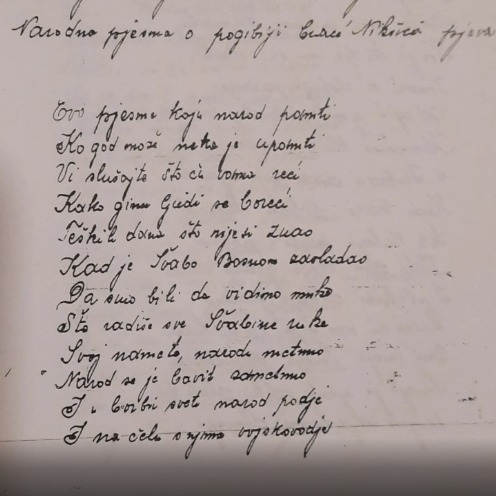 Narodna pjesma o pogibiji braće Nikšića pjeva
Evo pjesme koju narod pamti
Ko god može neka je upamti
Vi slušajte što ću vama reći
Kako ginu ljudi se boreći
Teških dana što nijesi znao
Kad je Švabo Bosnom zavladao
Da smo bili da vidimo muke
Što radiše sve Švabine ruke
Svoj namet, narodu metnuo
Narod se je bavit zametnuo
I u borbu svet narod podje
I na čelu s njima vojskovodje